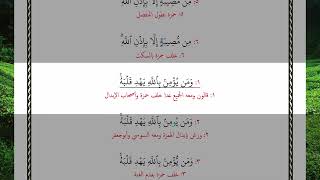 ٥: مِن مُّصِيبَةٍ إِلَّا بِإِذْنِ ٱللَّهِۗ
٥: حمزة بطول المنفصل
٦: مِن مُّصِيبَةٍ إِلَّا بِإِذْنِ ٱللَّهِۗ
٦: خلف حمزة بالسكت
١: وَمَن يُؤْمِنۢ بِٱللَّهِ يَهْدِ قَلْبَهُۥۚ
١: قالون ومعه الجميع عدا خلف حمزة وأصحاب الإبدال
٢: وَمَن يُومِنۢ بِٱللَّهِ يَهْدِ قَلْبَهُۥۚ
٢: ورش بإبدال الهمزة ومعه السوسي وأبوجعفر
٣: وَمَن يُؤْمِنۢ بِٱللَّهِ يَهْدِ قَلْبَهُۥۚ
٣: خلف حمزة بعدم الغنة